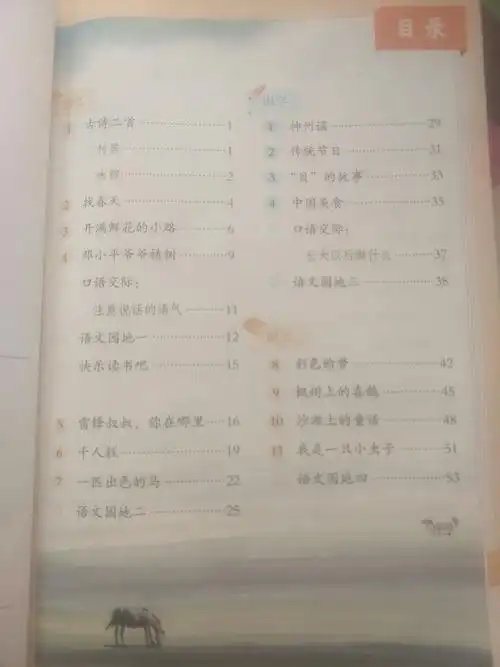 目录
1 古诗二首 1
村居 1
咏柳 2
2 找春天 4
3 开满鲜花的小路 6
4 邓小平爷爷植树 9
口语交际：
注意说话的语气 11
语文园地一 12
快乐读书吧 15
5 雷锋叔叔，你在哪里 16
6 千人糕 19
7 一匹出色的马 22
语文园地二 25
识字
1 神州谣 29
2 传统节日 31
3 “贝”的故事 33
4 中国美食 35
口语交际：
长大以后做什么 37
语文园地三 38
8 彩色的梦 42
9 枫树上的喜鹊 45
10 沙滩上的童话 48
11 我是一只小虫子 51
语文园地四 53